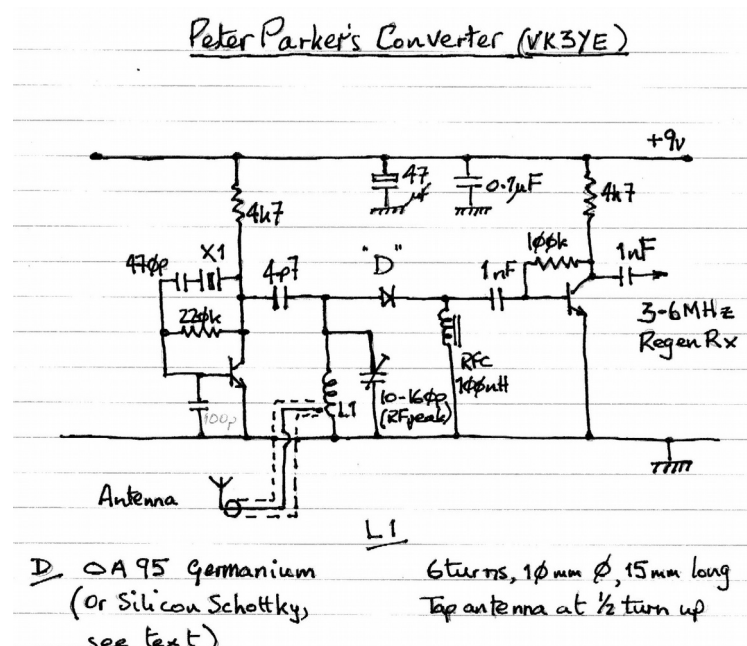 Peter Parker's Converter (VK3YE)
+9v
47
µf
0.1µF
4k7
4k7
100k
470p
X1
4p7
"D"
1nF
1nF
220k
3-6MHz
Regen Rx
RFC
100µH
10-160p
(RFpeak)
L1
100p
Antenna
L1
D OA95 Germanium
(Or Silicon Schottky,
see text)
6turns, 10mm Ø, 15mm long
Tap antenna at ½ turn up